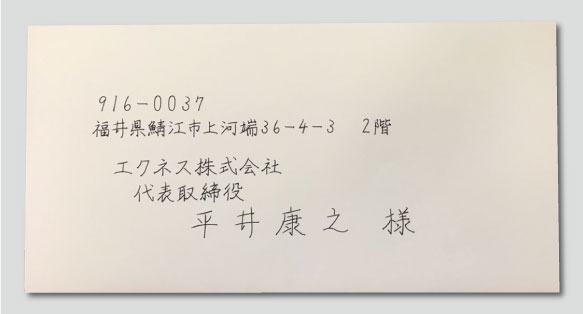 916-0037
福井県鯖江市上河端36-4-3 2階
エクネス株式会社
代表取締役
平井康之 様